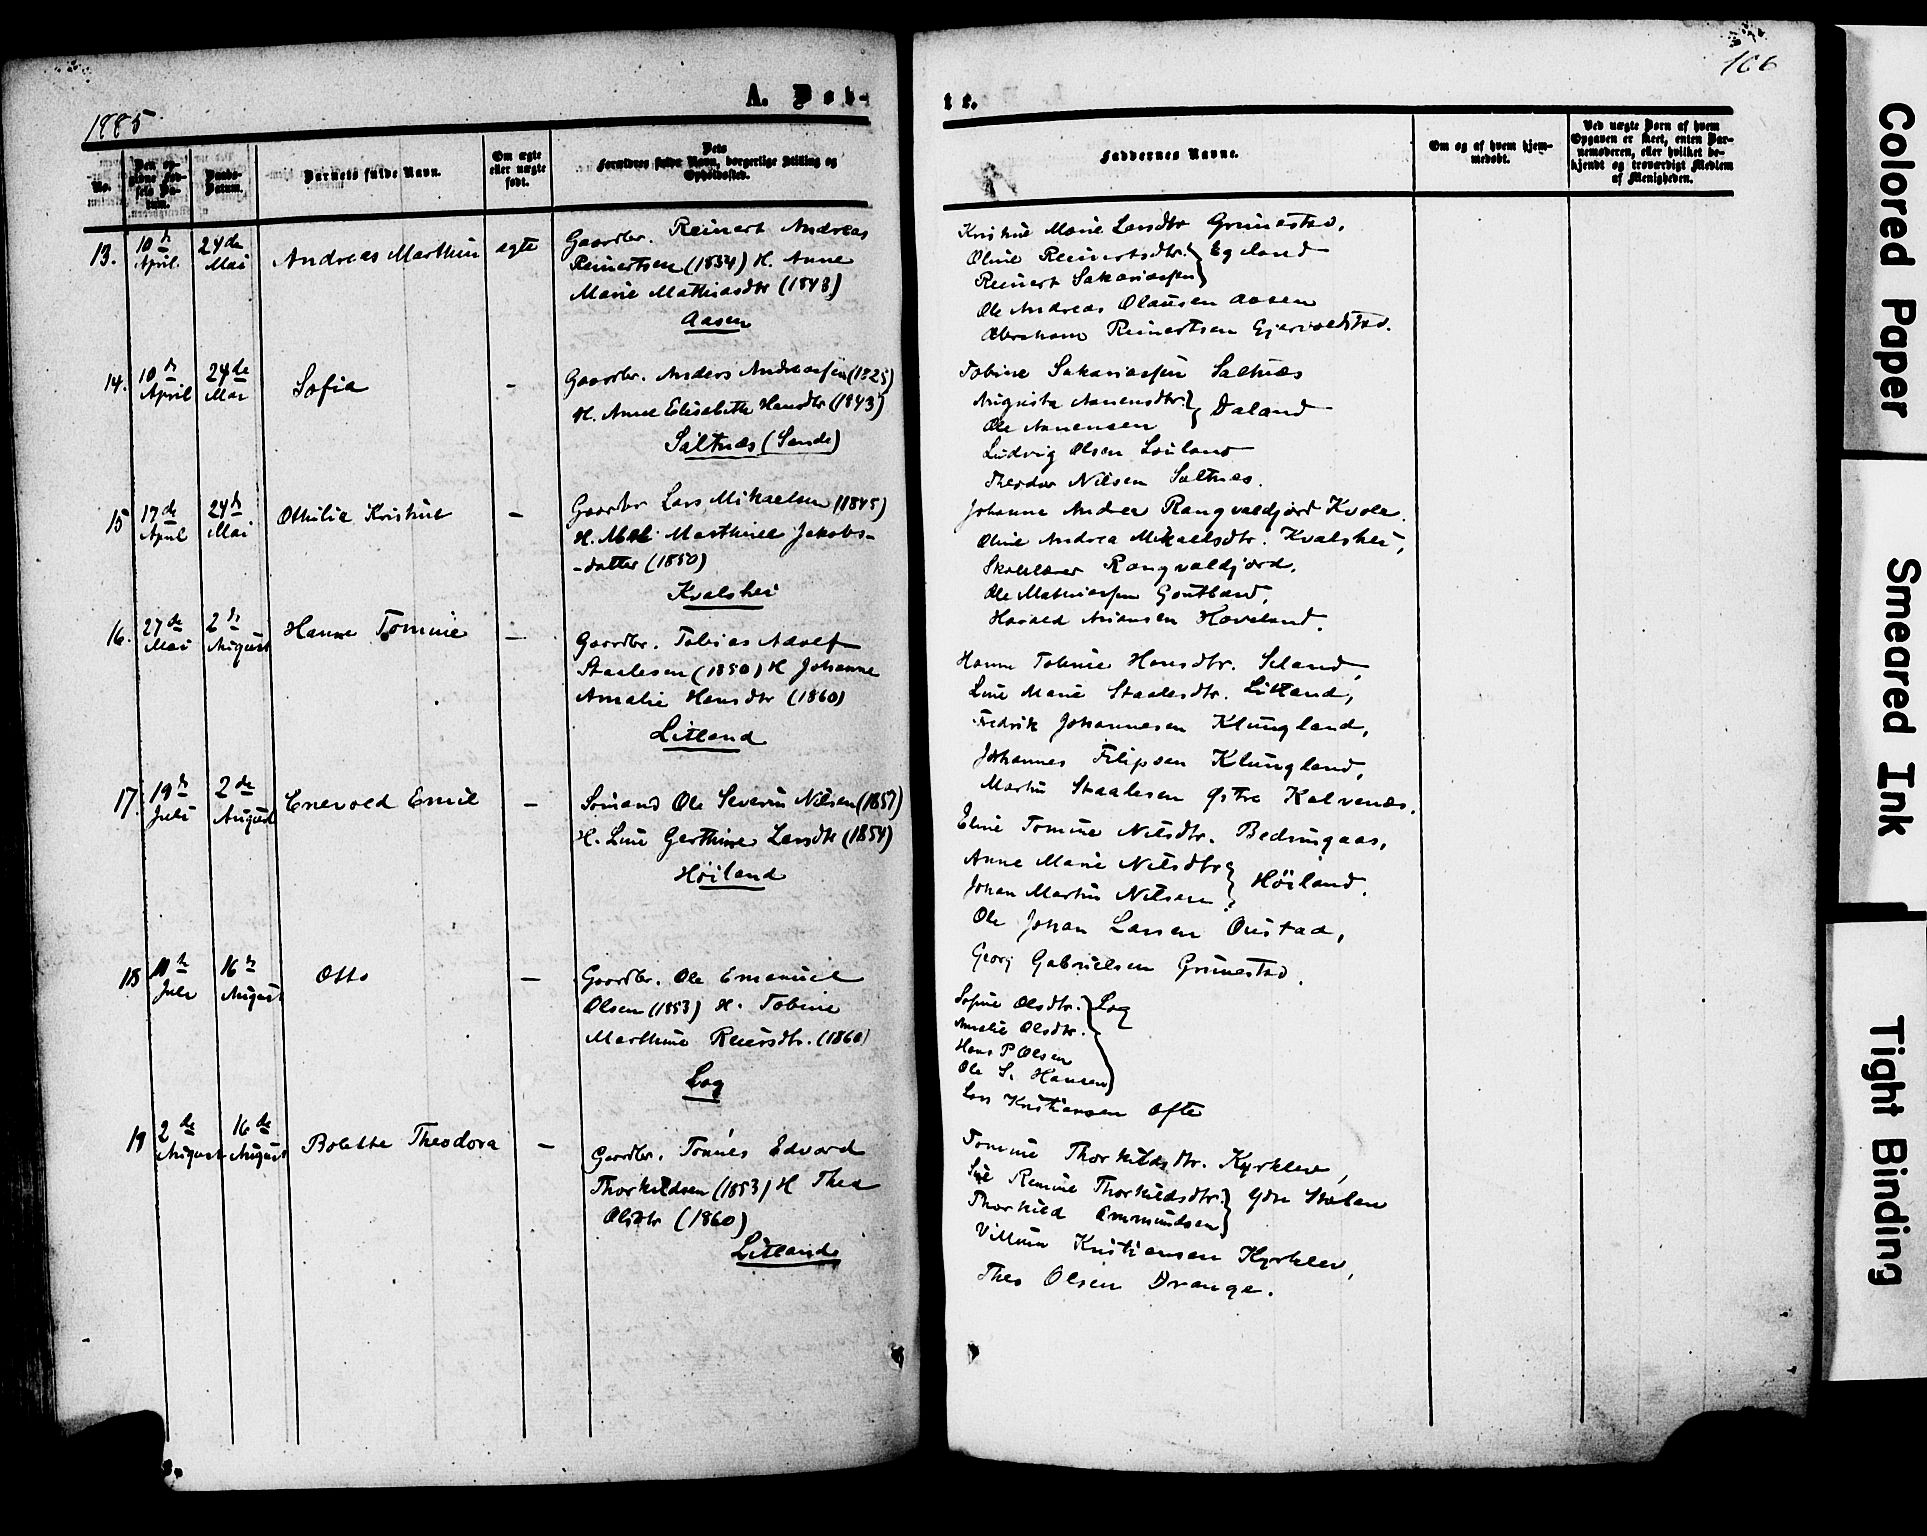 106
1885
A. Døb-
te.
No.
Den op-
givne Fød-
sels Da-
tum.
Daabs-
Datum.
Barnets fulde Navn.
Om ægte
eller uægte
født.
Dets
Forældres fulde Navn, borgerlige Stilling og
Opholdssted.
Faddernes Navne.
Om og af hvem hjem-
medøbt.
Ved uægte Børn af hvem
Opgaven er skeet, enten Bar-
nemoderen, eller hvilket be-
kjendt og troværdigt Medlem
af Menigheden.
13. 10de April. 24de Mai Andreas Marthin ægte
Gaardbr. Reinert Andreas
Reinertsen (1834) H. Anne
Marie Mathiasdtr (1843)
Aasen
Kristine Marie Larsdtr Grimestad,
Oline Reinertsdtr. } Egeland
Reinert Sakariassen
Ole Andreas Olausen Aasen
Abraham Reinertsen Gjervoldstad.
14. 10de April 24de Mai Sofia -
Gaardbr. Anders Andreassen (1825)
H. Anne Elisabeth Hansdtr (1843)
Saltnæs (Sande)
Tobine Sakariassen Saltnæs
Augusta Aanensdtr. } Daland
Ole Aanensen
Ludvig Olsen Louland
Theodor Nilsen Saltnæs.
15 17de April 24de Mai Othilia Kristine -
Gaardbr Lars Mikaelsen (1845)
H. Marthine Jakobs-
-datter (1850)
Kvalshei
Johanna Andrea Rangvaldjord Kvole.
Oline Andrea Mikaelsdtr. Kvalshei,
Skolelærer Rangvaldjord,
Ole Mathiassen
Harald Hoveland.
16. 27de Mai 2de August Hanne Tomine -
Gaardbr. Tobias Adolf
Staalesen (1850) H Johanne
Amalie Hansdtr (1860)
Litland
Hanne Tobine Hansdtr. Seland,
Line Marie Staalesdtr. Litland,
Fredrik Johannesen Klungland,
Johannes Filipsen Klungland,
Martin Staalesen Østre Kalvenæs.
17. 19de Juli 2de August Enevold Emil -
Sømand Ole Severin Nilsen (1857)
H. Line Gerthine Larsdtr (1854)
Høiland
Eline Tomine Nilsdtr. Bedringaas,
Anne Marie Nilsdtr } Høiland.
Johan Martin Nilsen
Ole Johan Larsen Oustad,
Georg Gabrielsen Grimestad.
18 10de Juli 16de August Otto -
Gaardbr. Ole Emanuel
Olsen (1853) H. Tobine
Marthine Reiersdtr. (1860)
Log
Sofine Olsdtr. } Log
Amalie Olsdtr.
Hans P Olsen
Ole S. Hansen
Lars Kristiansen Ofte
19 2de August 16de August Bolette Theodora -
Gaardbr. Tønnes Edvard
Thorkildsen (1853) H Thea
Olsdtr (1860)
Litland
Tomine Thorkildsdtr. Kyrklev,
Remine Thorkildsdtr. } Ydre Stølen
Thorkild Ommundsen
Villum Kristiansen Kyrklev,
Theo Olsen Drange.
Colored Paper
Smeared Ink
Tight Binding